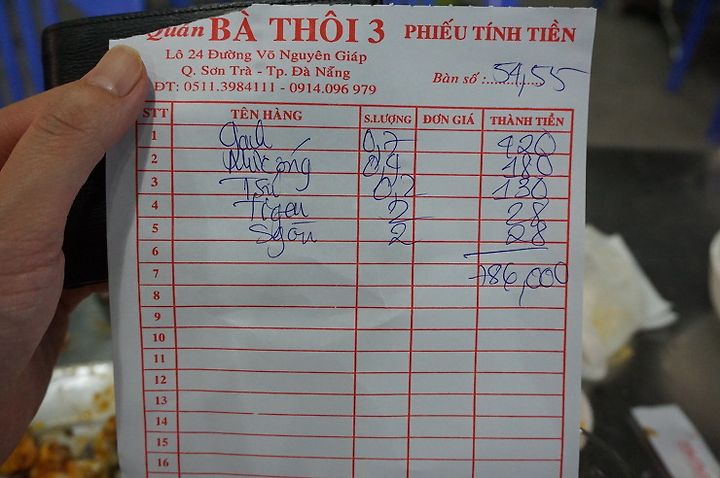 Quán BÀ THÔI 3 PHIẾU TÍNH TIỀN
Lô 24 Đường Võ Nguyên Giáp
Q. Sơn Trà - Tp. Đà Nẵng
ĐT: 0511.3984111 - 0914.096 979
Bàn số : 54,55
STT TÊN HÀNG S.LƯỢNG ĐƠN GIÁ THÀNH TIỀN
1 0,7 420
2 0,4 180
3 0,2 130
4 Tiger 2 28
5 Sgòn 2 28
6
7 786,000
8
9
10
11
12
13
14
15
16